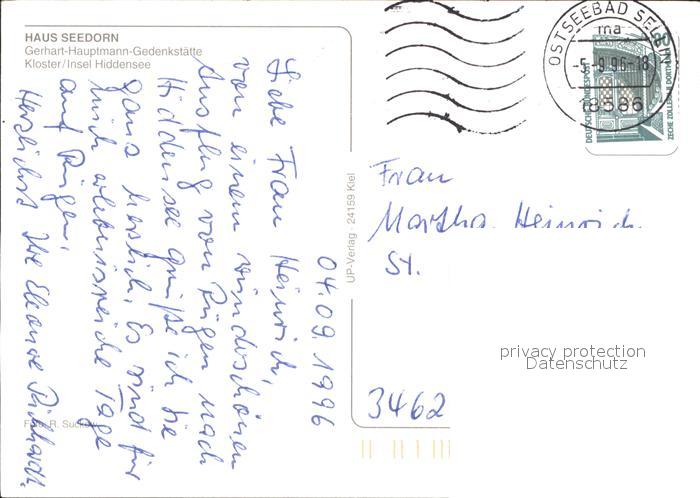 HAUS SEEDORN
Gerhart-Hauptmann-Gedenkstätte
Kloster/Insel Hiddensee
04.09.1996
Liebe Frau Heinrich,
von einem wunderschönen
Ausflug von Rügen nach
Hiddensee grüße ich Sie
ganz herzlich. Es sind für
mich erlebnisreiche Tage
auf Rügen.
Herzlichst Ihre Eleonore
Foto: R.
UP-Verlag · 24159 Kiel
OSTSEEBAD SEL
ma
-5.-9.96-18
18586
80
DEUTSCHE BUNDESPOST
ZECHE ZOLLERN II DORTMUND
Frau
Martha Heinrich
St.
3462
privacy protection
Datenschutz